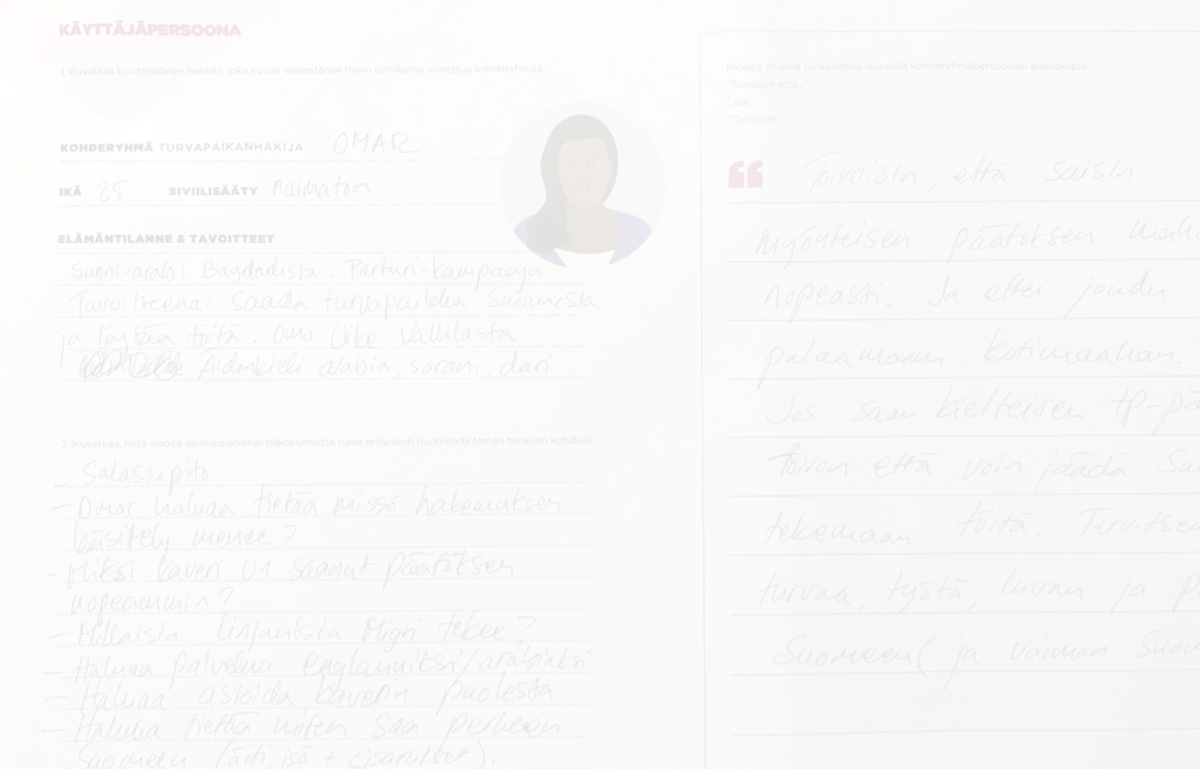 KÄYTTÄJÄPERSOONA
1. Kuvatkaa kuvitteellinen henkilö, joka kuvaa mielestänne hyvin tiimillenne annettua kohderyhmää.
KOHDERYHMÄ TURVAPAIKANHAKIJA OMAR
IKÄ 25 SIVIILISÄÄTY naimaton
ELÄMÄNTILANNE & TAVOITTEET
Sunni-arabi Bagdadista. Parturi-kampaaja.
Tavoitteena: Saada turvapaikka Suomesta
ja löytää töitä. Oma liike Vallilasta
Äidinkieli arabia, sorani, dari
2. Kuvatkaa, mitä asioita asiakaspalvelun näkökulmasta tulee erityisesti huomioida tämän henkilön kohdalla
- Salassapito
- Omar haluaa tietää missä hakemuksen
käsittely menee?
- Miksi kaveri on saanut päätöksen
nopeammin?
- Millaisia linjauksia Migri tekee?
- Haluaa palvelua englanniksi/arabiaksi.
- Haluaa asioida kaverin puolesta
- Haluaa tietää miten saa perheen
Suomeen (äiti, isä + sisarukset).
Kirjoita yhdellä tai kahdella lauseella kohderyhmäpersoonasi ajatuskupla.
"Toivoisin että..."
"Jos..."
"Tarvitsen..."
❝ Toivoisin että saisin
myönteisen päätöksen
nopeasti. Ja ettei joudu
palaamaan kotimaahan.
Jos saan kielteisen tp-pä
Toivon että voin jäädä Su
tekemään töitä. Tarvitse
turvaa, työtä, luvan ja p
Suomeen (ja vaimon Suo